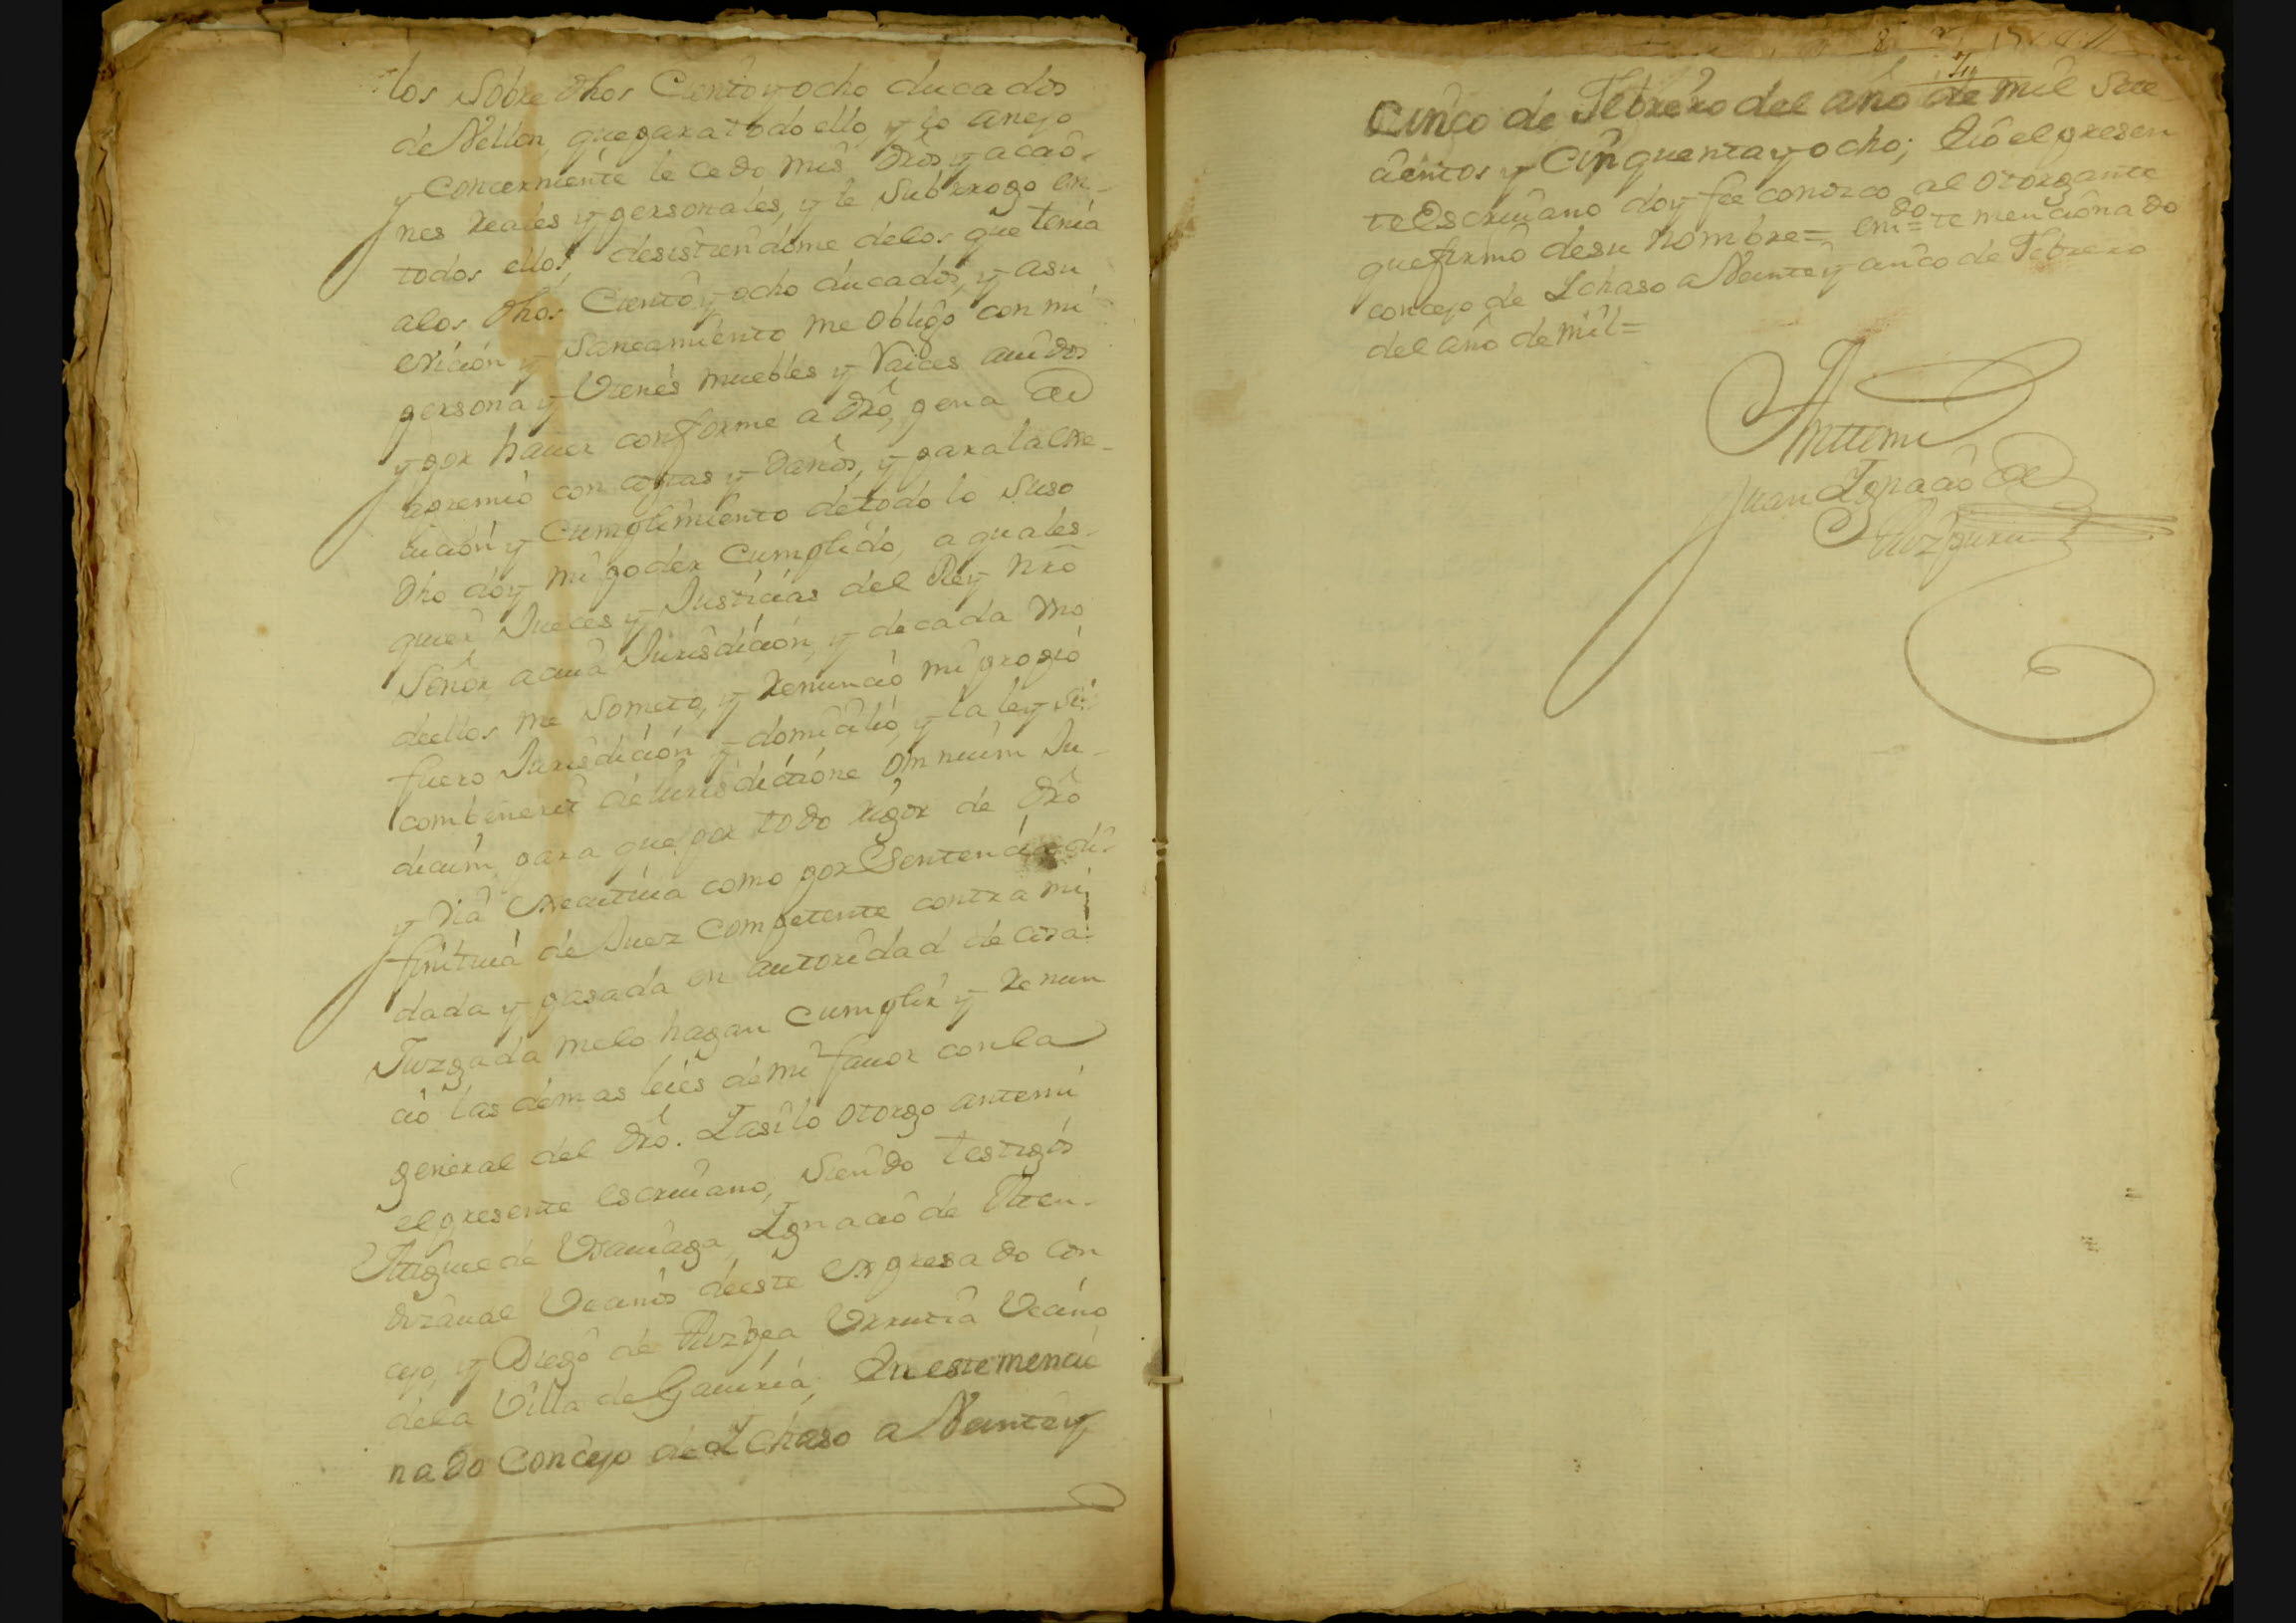 los sobre dhos Ciento y ocho ducados
de Vellon, que para todo ello, y lo anejo
y Concerniente le cedo mis dros y accio-
nes Reales y personales, y le Subrrogo en-
todos ellos, desistiendome delos que tenia
alos dhos Ciento y ocho ducados, y asu
evicion y Saneamiento me obligo con mi
persona y Vienes muebles y Raices auidos
y por hauer conforme a dro, pena de
apremio con costas y daños, y para la exe-
cucion y Cumplimiento de todo lo Suso
dho doy mi poder Cumplido, a quales-
quier Jueces y Justicias del Rey nro
Señor a cuia Jurisdicion, y de cada vno
deellos me Someto, y Renuncio mi propio
fuero Jurisdicion y domicilio, y la ley Si
combenerit de Jurisdictione omnium Ju-
dicum para que por todo rigor de dro
y via executiua como por Sentencia di-
finitiua de Juez Competente contra mi
dada y pasada en autoridad de cosa
Juzgada melo hagan Cumplir y Renun
cio las demas leies de mi fauor con la
general del dro. I asi lo otorgo ante mi
el presente escriuano, Siendo testigos
Miguel de Vsauiaga, Ignacio de Men-
dizaual Vecinos deeste expresado Con
cejo, y Diego de Urrutia Vecino
dela Villa de Gauiria; En este mencio
nado Concejo de Ichaso a Veinte y
Cinco de Febrero del año de mil Sete
cientos y Cinquenta y ocho; Eio el presen
te Escriuano doy fee conozco al otorgante
que firmo desu nombre= em=do te mencionado
concejo de Ichaso a Veinte y cinco de Febrero
del año de mil=
Antte mi
Juan Ignacio de